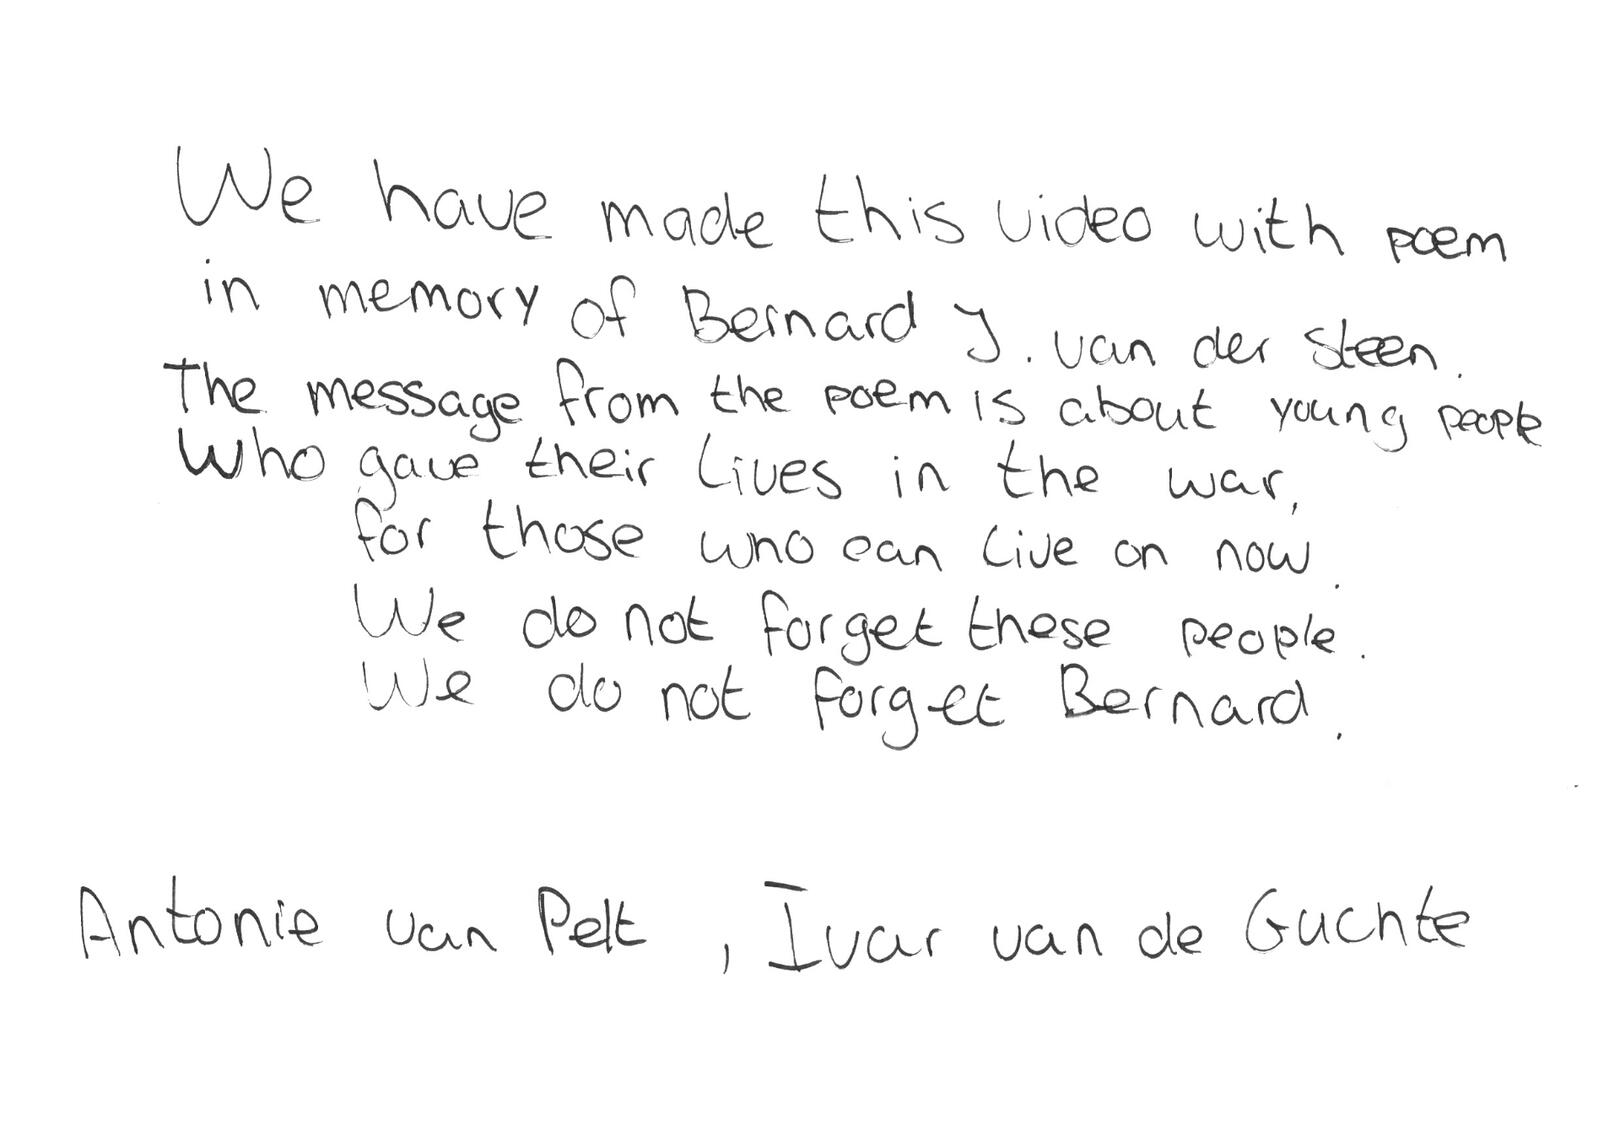 We have made this video with poem
in memory of Bernard J. van der Steen.
The message from the poem is about young people
Who gave their lives in the war,
for those who can live on now.
We do not forget these people.
We do not forget Bernard.
Antonie van Pelt, Ivar van de Guchte